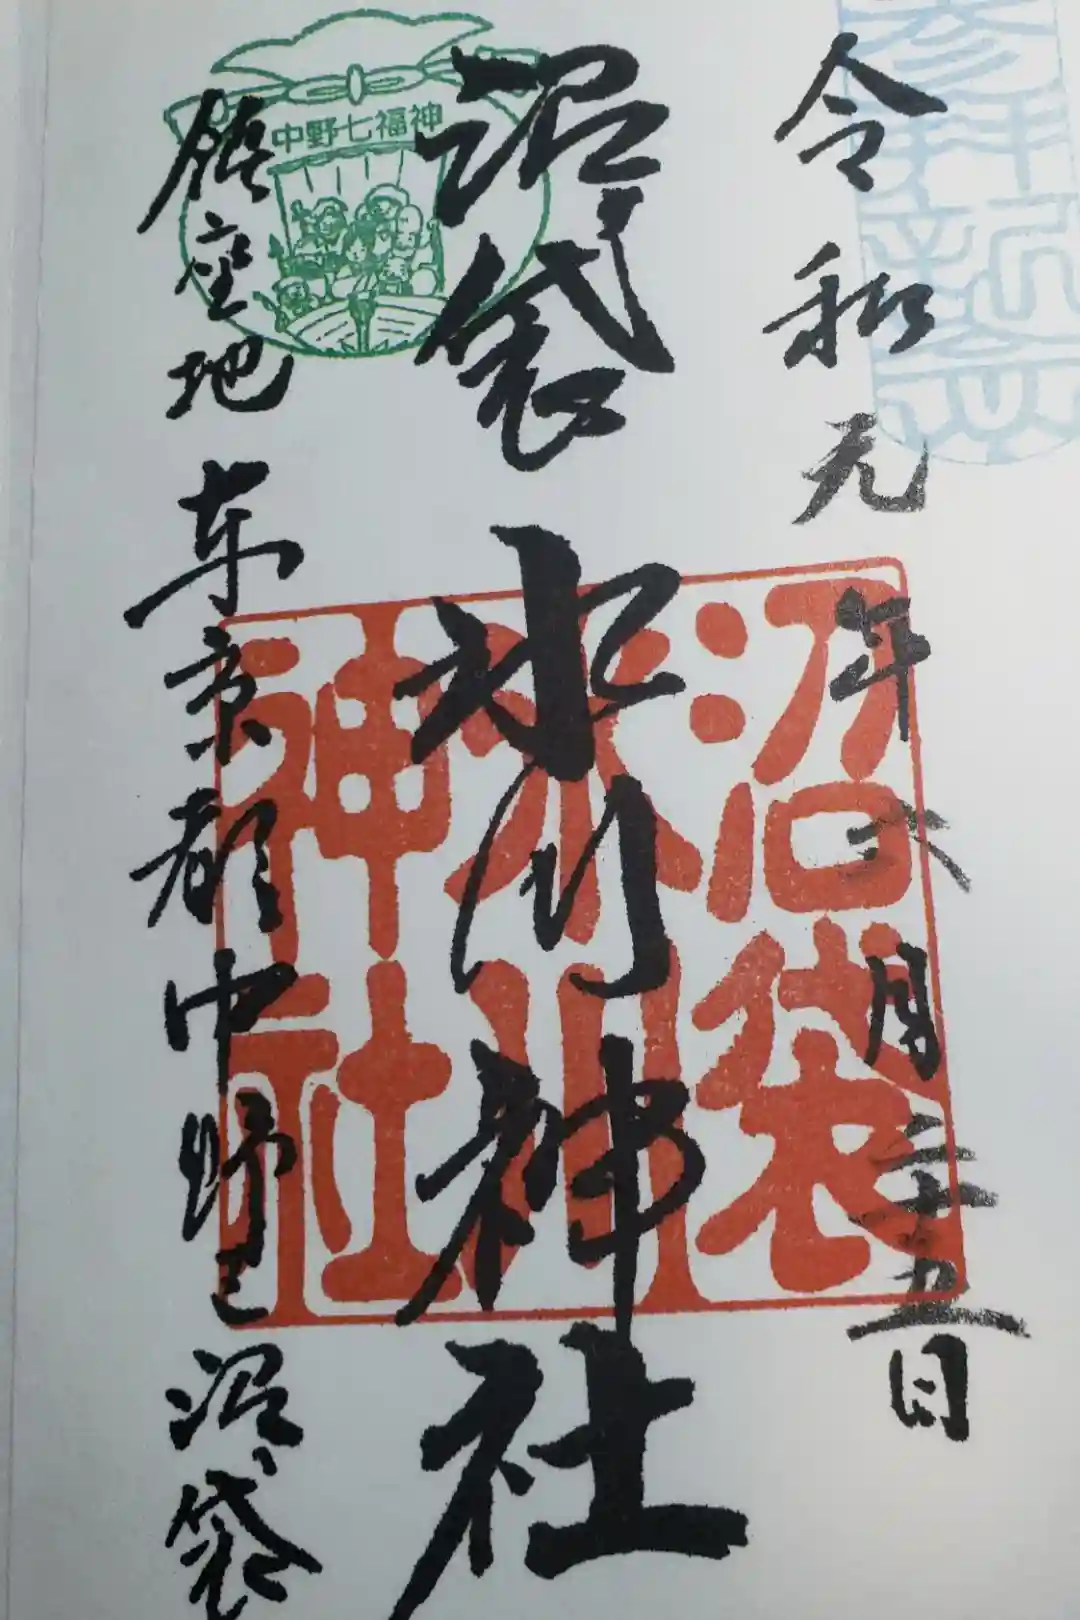 令和元年六月二十五日
沼袋氷川神社
沼袋
氷川
神社
中野七福神
鎮座地東京都中野区沼袋